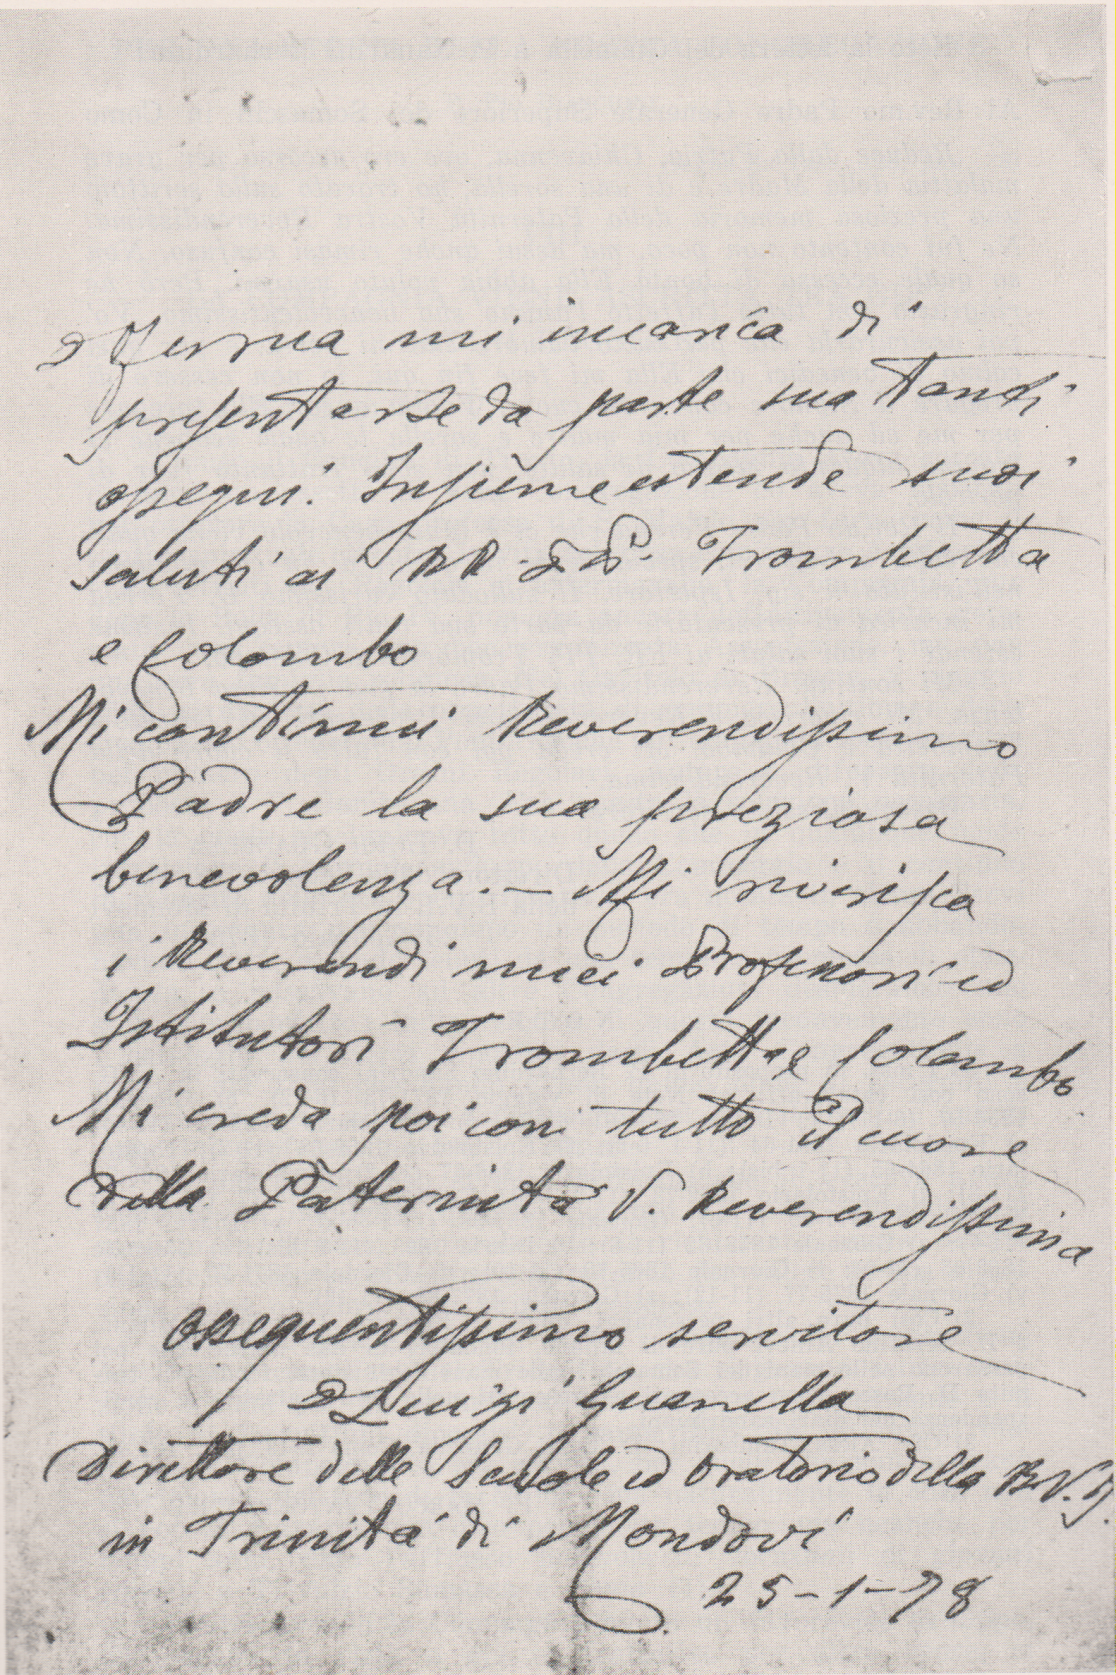 D Ferrua mi incarica di
presentarle da parte sua tanti
ossequi. Insieme estende suoi
saluti ai RR. PP. Trombetta
e Colombo
Mi continui Reverendissimo
Padre la sua preziosa
benevolenza. – Mi riverisca
i Reverendi miei Professori ed
Istitutori Trombetta e Colombo
Mi creda poi con tutto il cuore
della Paternità V. Reverendissima
ossequentissimo servitore
D Luigi Guanella
Direttore delle Scuole ed Oratorio della B. V.
in Trinità di Mondovì
25-1-78